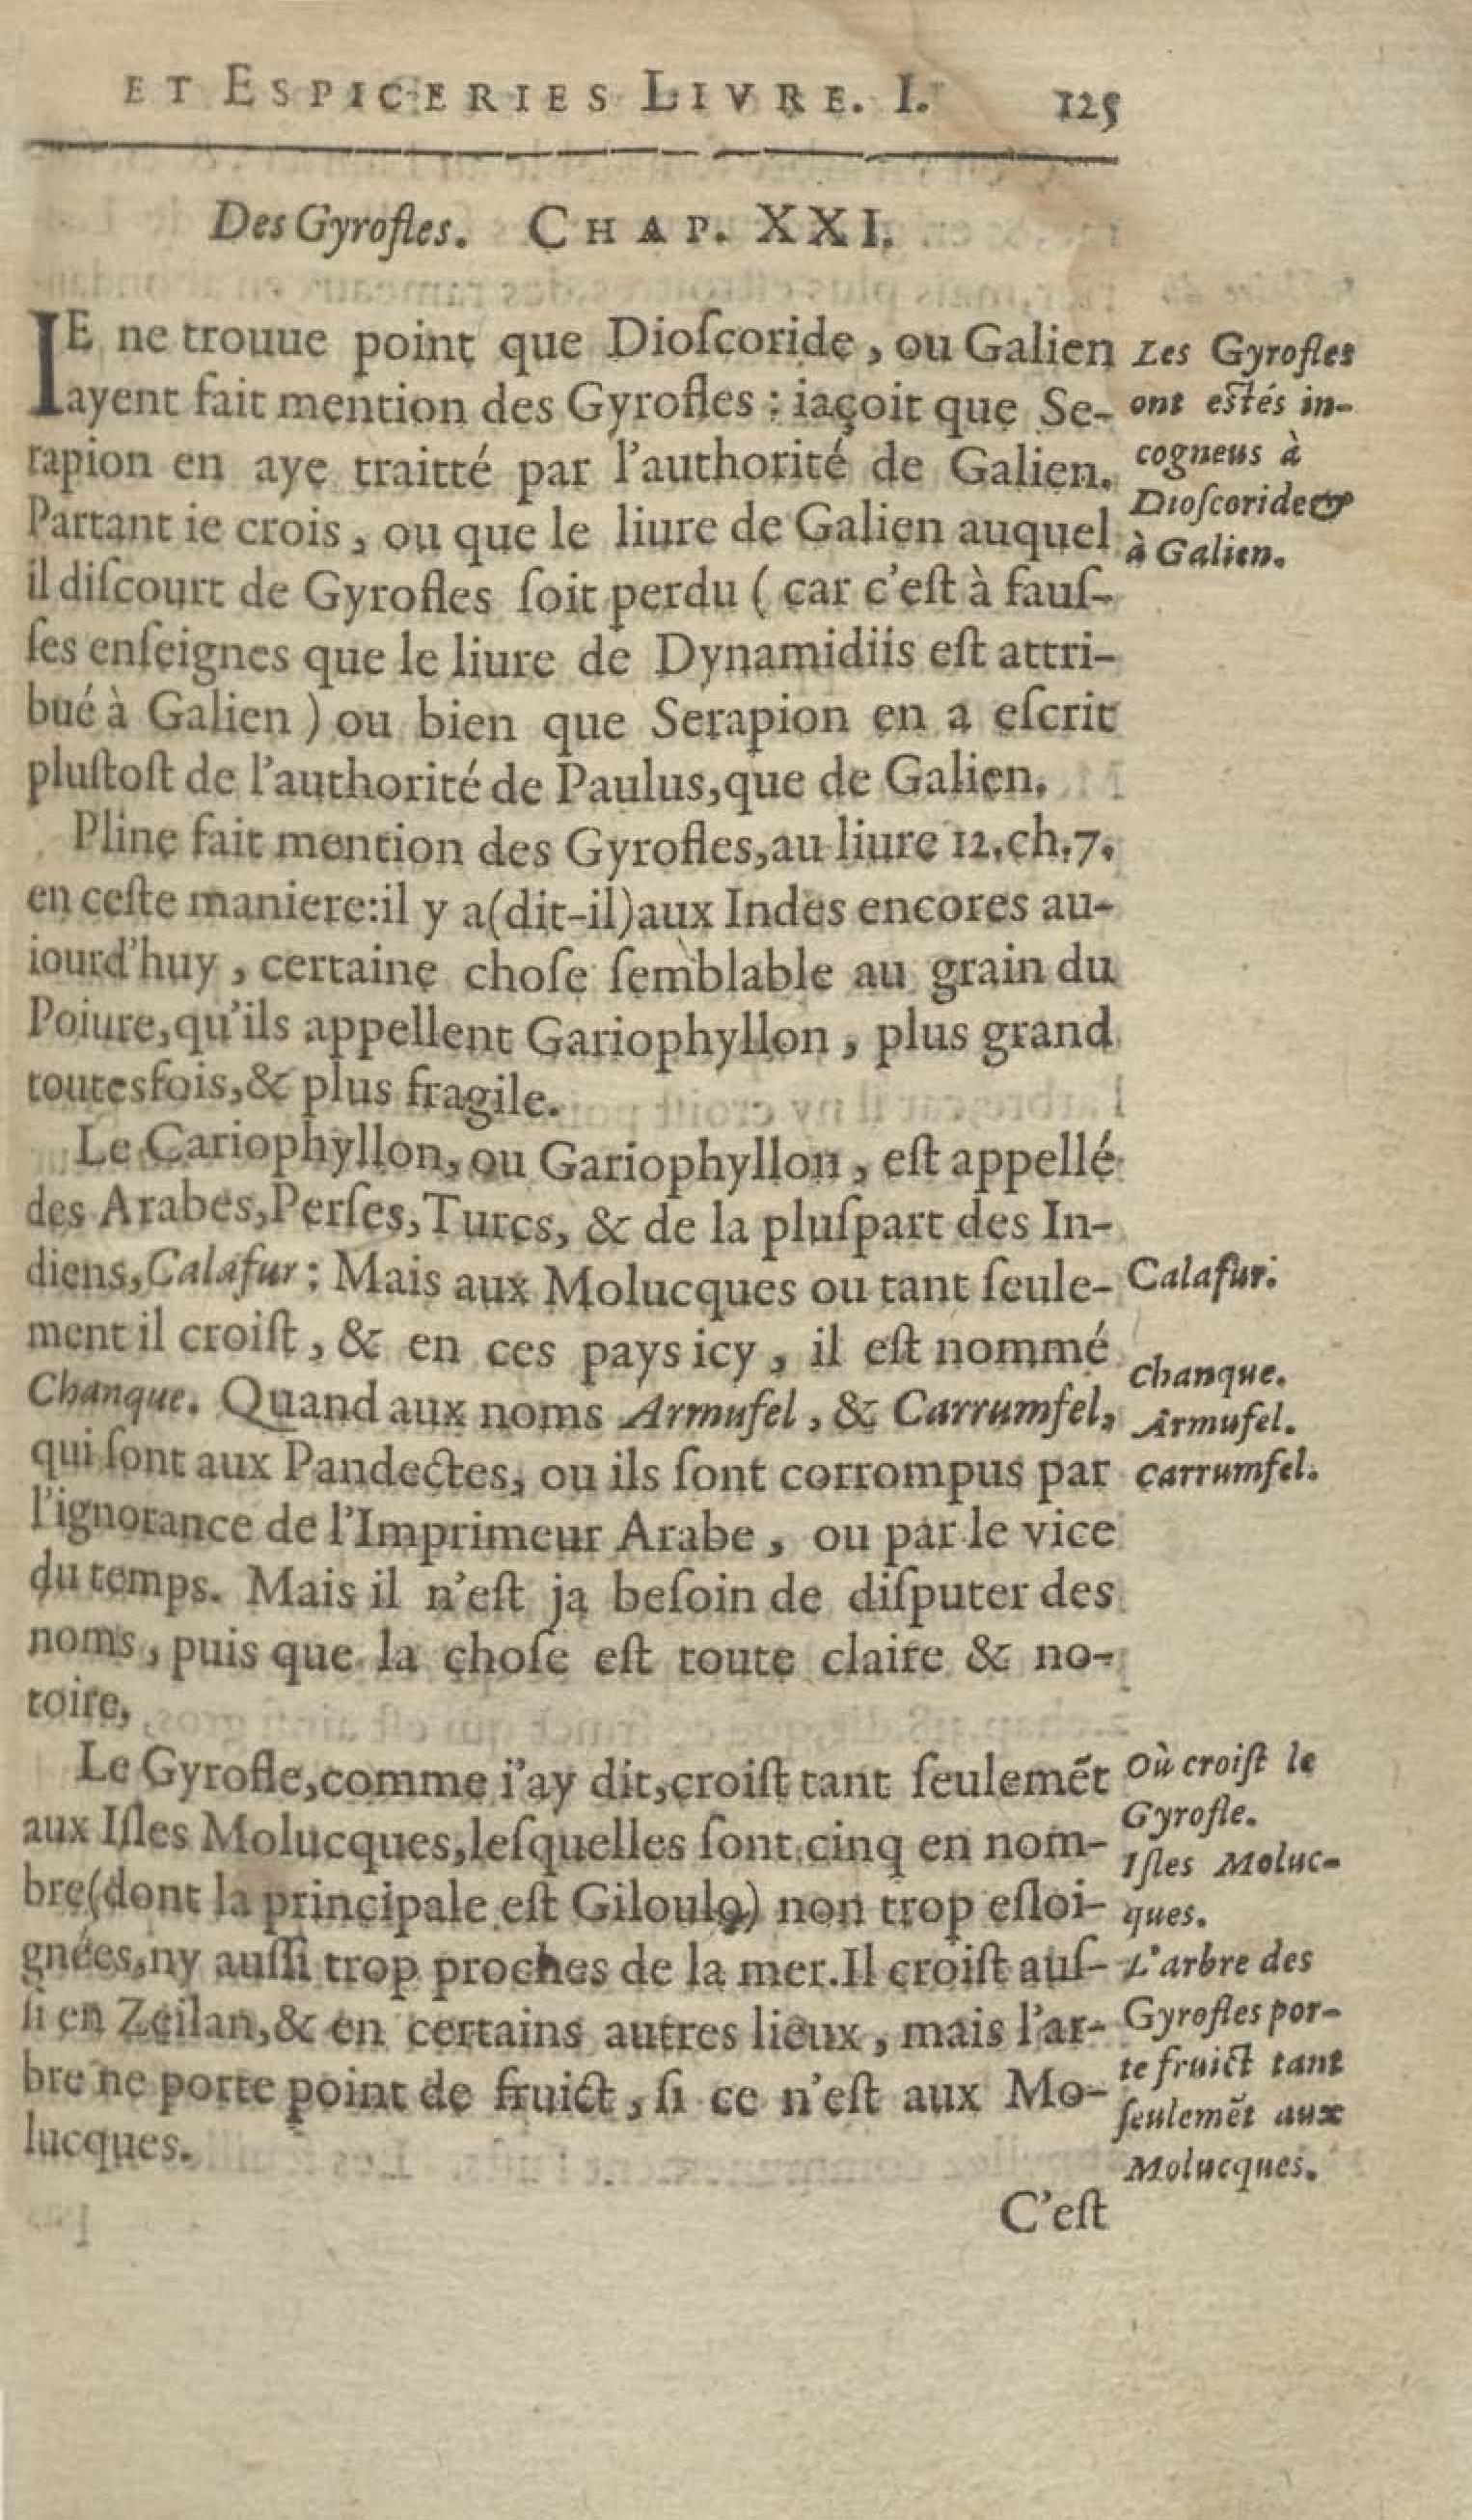 ET ESPICERIES LIVRE. I. 125
Des Gyrofles. CHAP. XXI.
IE ne trouue point que Dioſcoride, ou Galien
ayent fait mention des Gyrofles: iaçoit que Se-
rapion en aye traitté par l'authorité de Galien.
Partant ie crois, ou que le liure de Galien auquel
il diſcourt de Gyrofles ſoit perdu (car c'eſt à fauſ-
ſes enſeignes que le liure de Dynamidiis eſt attri-
bué à Galien) ou bien que Serapion en a eſcrit
pluſtoſt de l'authorité de Paulus, que de Galien.
Pline fait mention des Gyrofles, au liure 12. ch. 7.
en ceſte maniere: il y a (dit-il) aux Indes encores au-
iourd'huy, certaine choſe ſemblable au grain du
Poiure, qu'ils appellent Gariophyllon, plus grand
toutesfois, & plus fragile.
Le Cariophyllon, ou Gariophyllon, eſt appellé
des Arabes, Perſes, Turcs, & de la pluſpart des In-
diens, Calafur: Mais aux Molucques ou tant ſeule-
ment il croiſt, & en ces pays icy, il eſt nommé
Chanque. Quand aux noms Armufel, & Carrumfel,
qui ſont aux Pandectes, ou ils ſont corrompus par
l'ignorance de l'Imprimeur Arabe, ou par le vice
du temps. Mais il n'eſt ja beſoin de diſputer des
noms, puis que la choſe eſt toute claire & no-
toire,
Le Gyrofle, comme i'ay dit, croiſt tant ſeulemẽt
aux Iſles Molucques, leſquelles ſont cinq en nom-
bre (dont la principale eſt Giloulo) non trop eſloi-
gnées, ny auſſi trop proches de la mer. Il croiſt auſ-
ſi en Zeilan, & en certains autres lieux, mais l'ar-
bre ne porte point de fruict, ſi ce n'eſt aux Mo-
lucques.
C'eſt
Les Gyrofles
ont eſtés in-
cogneus à
Dioſcoride &
à Galien.
Calafur.
Chanque.
Armufel.
Carrumfel.
Où croiſt le
Gyrofle.
Iſles Moluc-
ques.
L'arbre des
Gyrofles por-
te fruict tant
ſeulemẽt aux
Molucques.